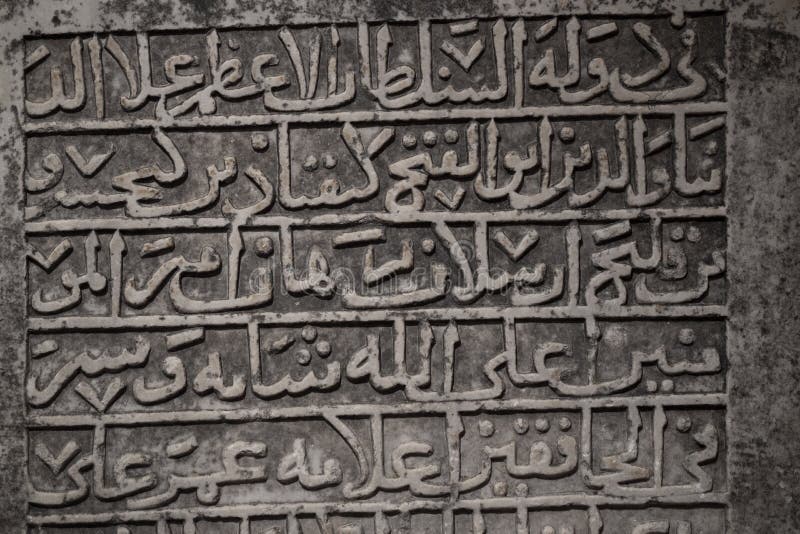 في دولة السلطان الاعظم علا الد
نيا والدين ابو الفتح كيقباذ بن كيخسرو
بن قلج ارسلان برهان امير المو
منين اعلى الله شانه و
في الخافقين اعلامه عمر على